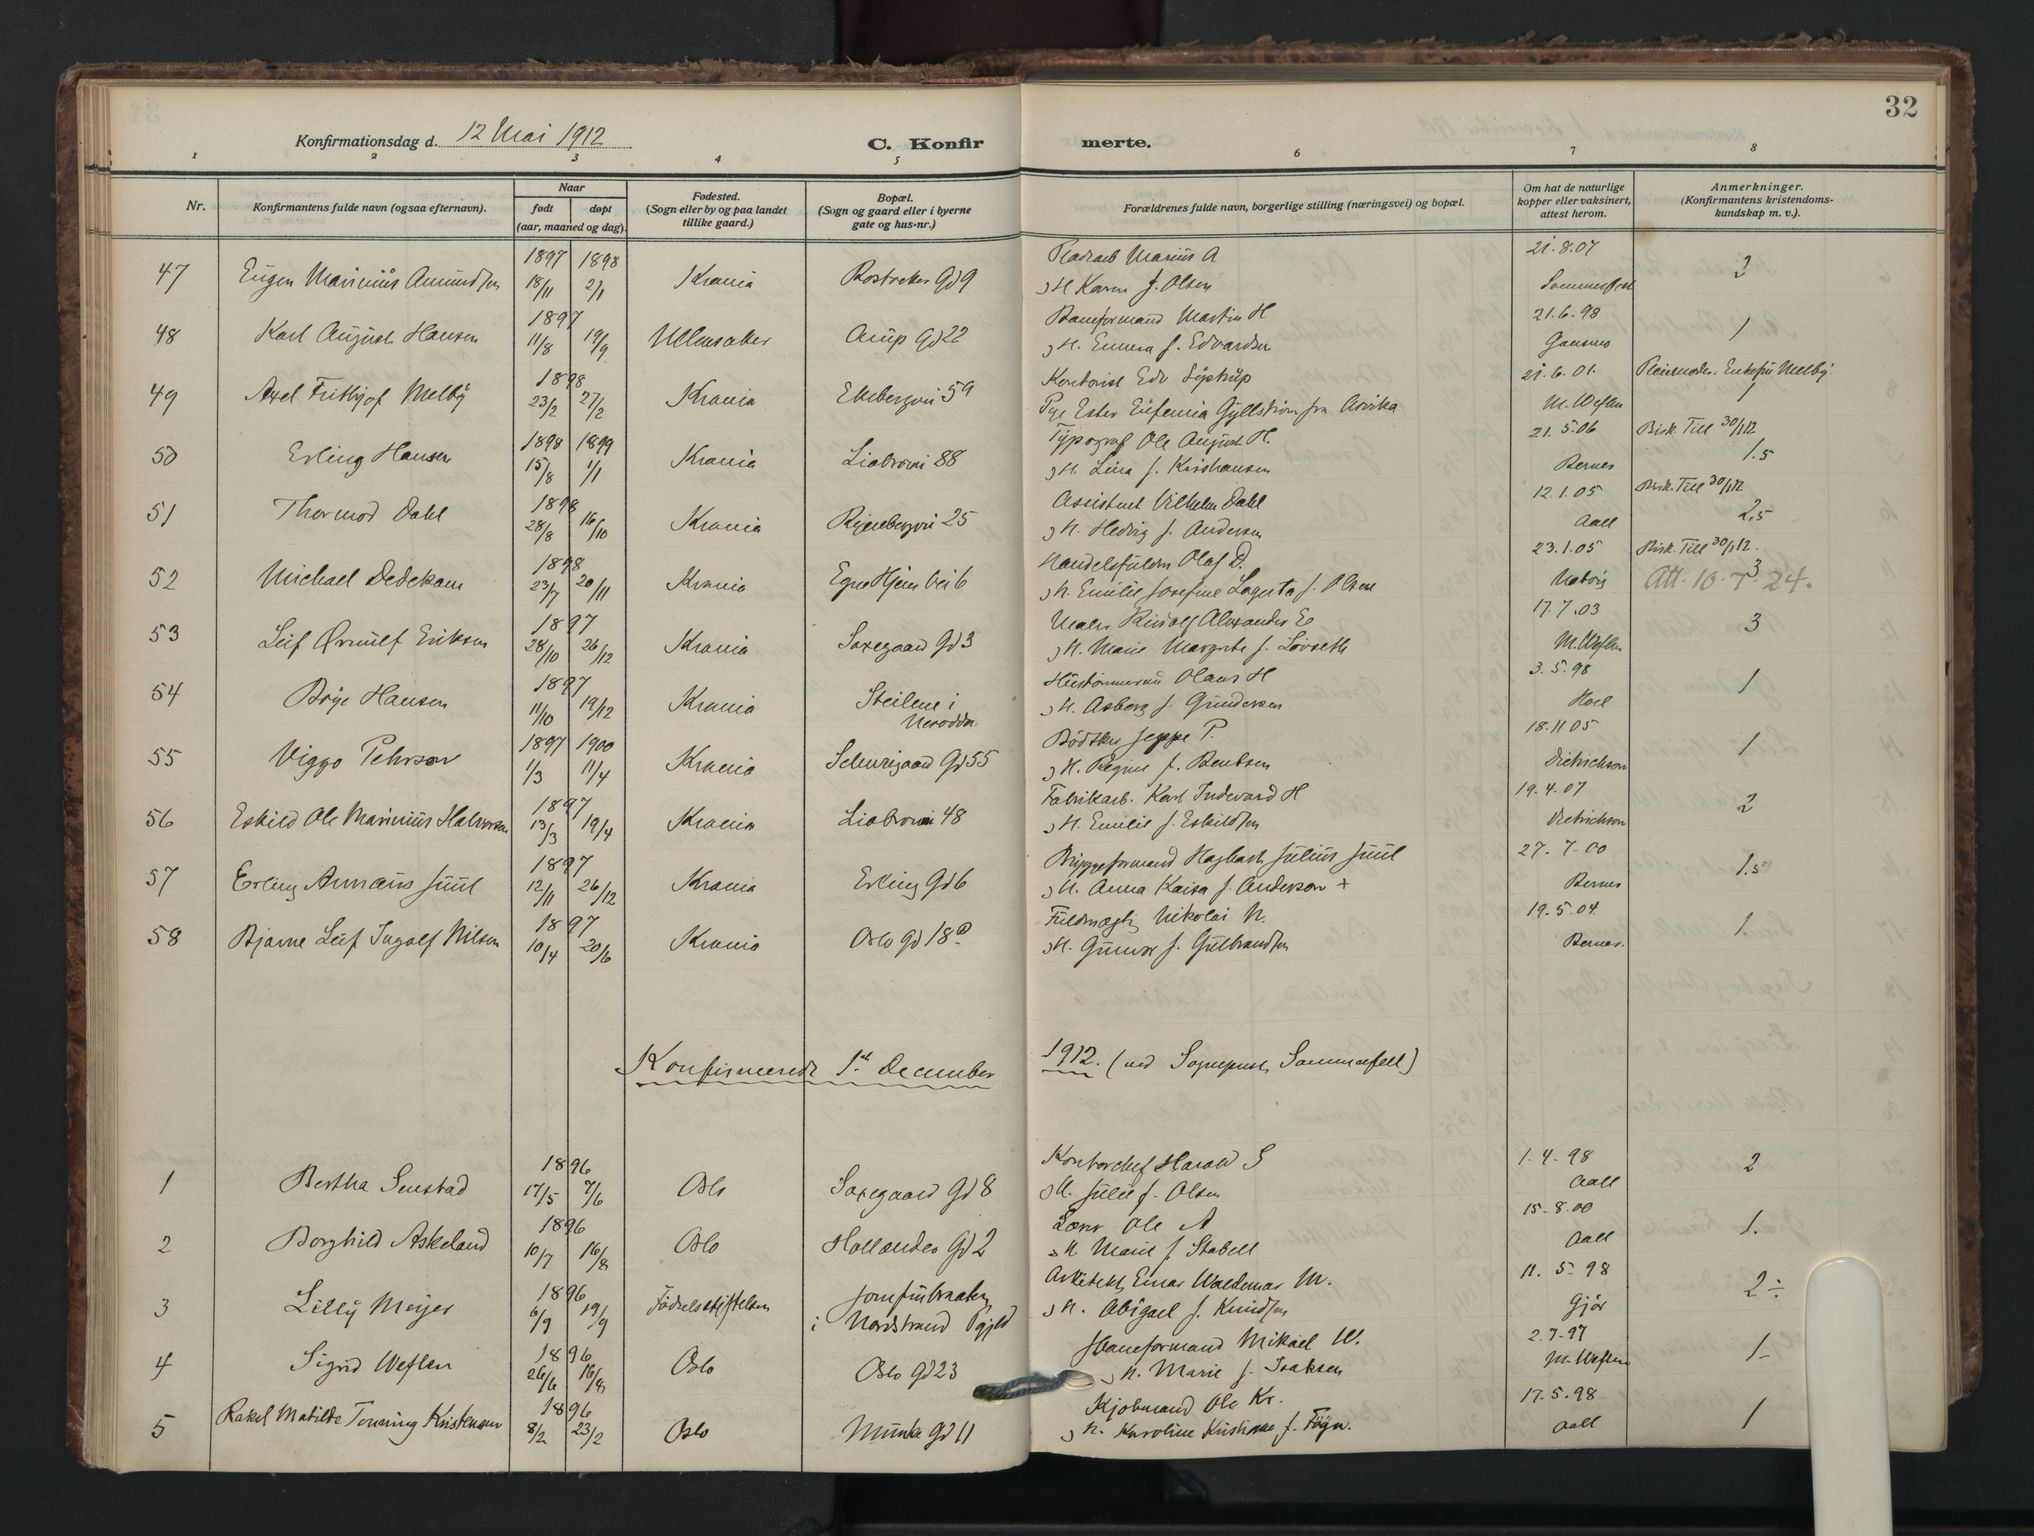 32
Konfirmationsdag d. 12 Mai 1912
C. Konfirmerte.
1 2 3 4 5 6 7 8
Nr.
Konfirmantens fulde navn (ogsaa efternavn).
Naar
født døpt
(aar, maaned og dag).
Fødested.
(Sogn eller by og paa landet
tillike gaard.)
Bopæl.
(Sogn og gaard eller i byerne
gate og hus-nr.)
Forældrenes fulde navn, borgerlige stilling (næringsvei) og bopæl.
Om hat de naturlige
kopper eller vaksinert,
attest herom.
Anmerkninger.
(Konfirmantens kristendoms-
kundskap m. v.).
1897 1898 Marius A 21.8.07
47 Eugen Marinius Amundsen 18/11 2/1 Krania Gd 9 2
H Karen f. Olsen Sommerfelt
1897 Baneformand Martin H 21.6.98
48 Karl August Hansen 11/8 19/9 Ullensaker Arup Gd 22 1
H. Emma f. Edvardsen
1898 Kontorist Edv 21.6.01. Pleiemoder. Enkefru Melby
49 Axel Frithjof Melby 23/2 27/2 Krania Ekebergvei 59 1
Pige Ester Eufemia Gyllström fra Arvika M. Weflen
1898 1899 Typograf Ole August H. 21.5.06 Bisk. Till 30/1 12
50 Erling Hansen 15/8 1/1 Krania Liabrovei 88 1.5
H. Lina f. Kristiansen Bernes
1898 Assistent Vilhelm Dahl 12.1.05 Bisk. Till 30/1 12
51 Thormod Dahl 28/8 16/10 Krania Ryenbergvei 25 2,5
H. Hedvig f. Andersen Aall
1898 Handelsfuldm Olaf D. 23.1.05 Bisk. Till 30/1 12.
52 Michael Dedekam 23/7 20/11 Krania Egne Hjem vei 6 3
H. Emilie Josefine Lagerta f. Olsen Att. 10-7-24.
1897 Maler Alexander E 17.7.03
53 Leif Ørnulf Eriksen 28/10 26/12 Krania Saxegaard Gd 3 3
H. Marie Margrete f. Løvseth M. Weflen
1897 Olaus H 3.5.98
54 Børge Hansen 11/10 19/12 Krania Steilene i 1
Nesodden H. Asborg f. Gundersen Hoel
1897 1900 Bødtker Jeppe P. 18.11 05
55 Viggo Pehrson 1/3 11/4 Krania Schweigaard Gd 55 1
H. Regine f. Bentsen Dietrichson
1897 Fabrikarb. Karl Indevard H 19.4.07
56 Eskild Ole Marinius Halvorsen 13/3 19/4 Krania Liabrovei 48 2
H. Emilie f. Eskildsen Dietrichson
1897 Bryggeformand Hagbart Julius Juul 27.7-00
57 Erling Annæus Juul 12/11 26/12 Krania Erling Gd 6 1.5
H. Anna Kaisa f. Anderson + Bernes
1897 Fuldmægtig Nikolai N. 19.5.04.
58 Bjarne Leif Ingolf Nilsen 10/4 20/6 Krania Oslo Gd 18 1.
H. Gunvor f. Gulbrandsen Bernes.
Konfirmerede 1st December 1912. (ved Sognepræst Sommerfelt)
1896 Kontorchef Harald S 1.4-98
1 Bertha Senstad 17/5 7/6 Oslo Saxegaard Gd 8 2
H. Julie f. Olsen Aall
1896 Lærer Ole A 15-8.00
2 Borghild Askeland 10/7 16/8 Oslo Hollender Gd 2 1.
H Marie f Stabell Aall
1896 Arkitekt Einar Waldemar M. 11.5-98
3 Lilly Meyer 6/9 19/9 Fødselsstiftelsen Jomfrubraaten 2÷
i Nordstrand H. Abigael f. Knudsen Gjør
1896 Baneformand Mikael W. 2.7-97
4 Sigrid Weflen 26/6 16/8 Oslo Oslo Gd 23 1-
H. Marie f. Isaksen M. Weflen
1896 Kjøbmand Ole Kr. 17.5.98
5 Rakel Matilde Tenning Kristensen 8/2 23/2 Oslo Munke Gd 11 1
H. Karoline Kristiane f. Føyn. Aall